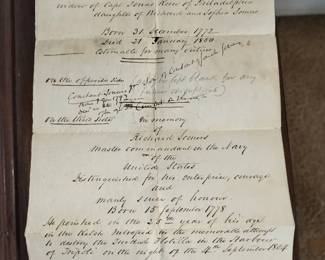 widow of Capt Jonas Keen of Philadelphia
daughter of Richard and Sophia Somers
Born 31 December 1772
Died 21 January 1850
Estimable for many virtues
on the opposite side
Constant Somers
on the third side
In memory
of
Richard Somers
Master commandant in the Navy
of the
United States
Distinguished for his enterprise, courage
and
manly sense of honour
Born 15 September 1778
He perished in the 25th year of his age
in the Ketch Intrepid in the memorable attempt
to destroy the Turkish Flotilla in the Harbour
of Tripoli on the night of the 4th September 1804